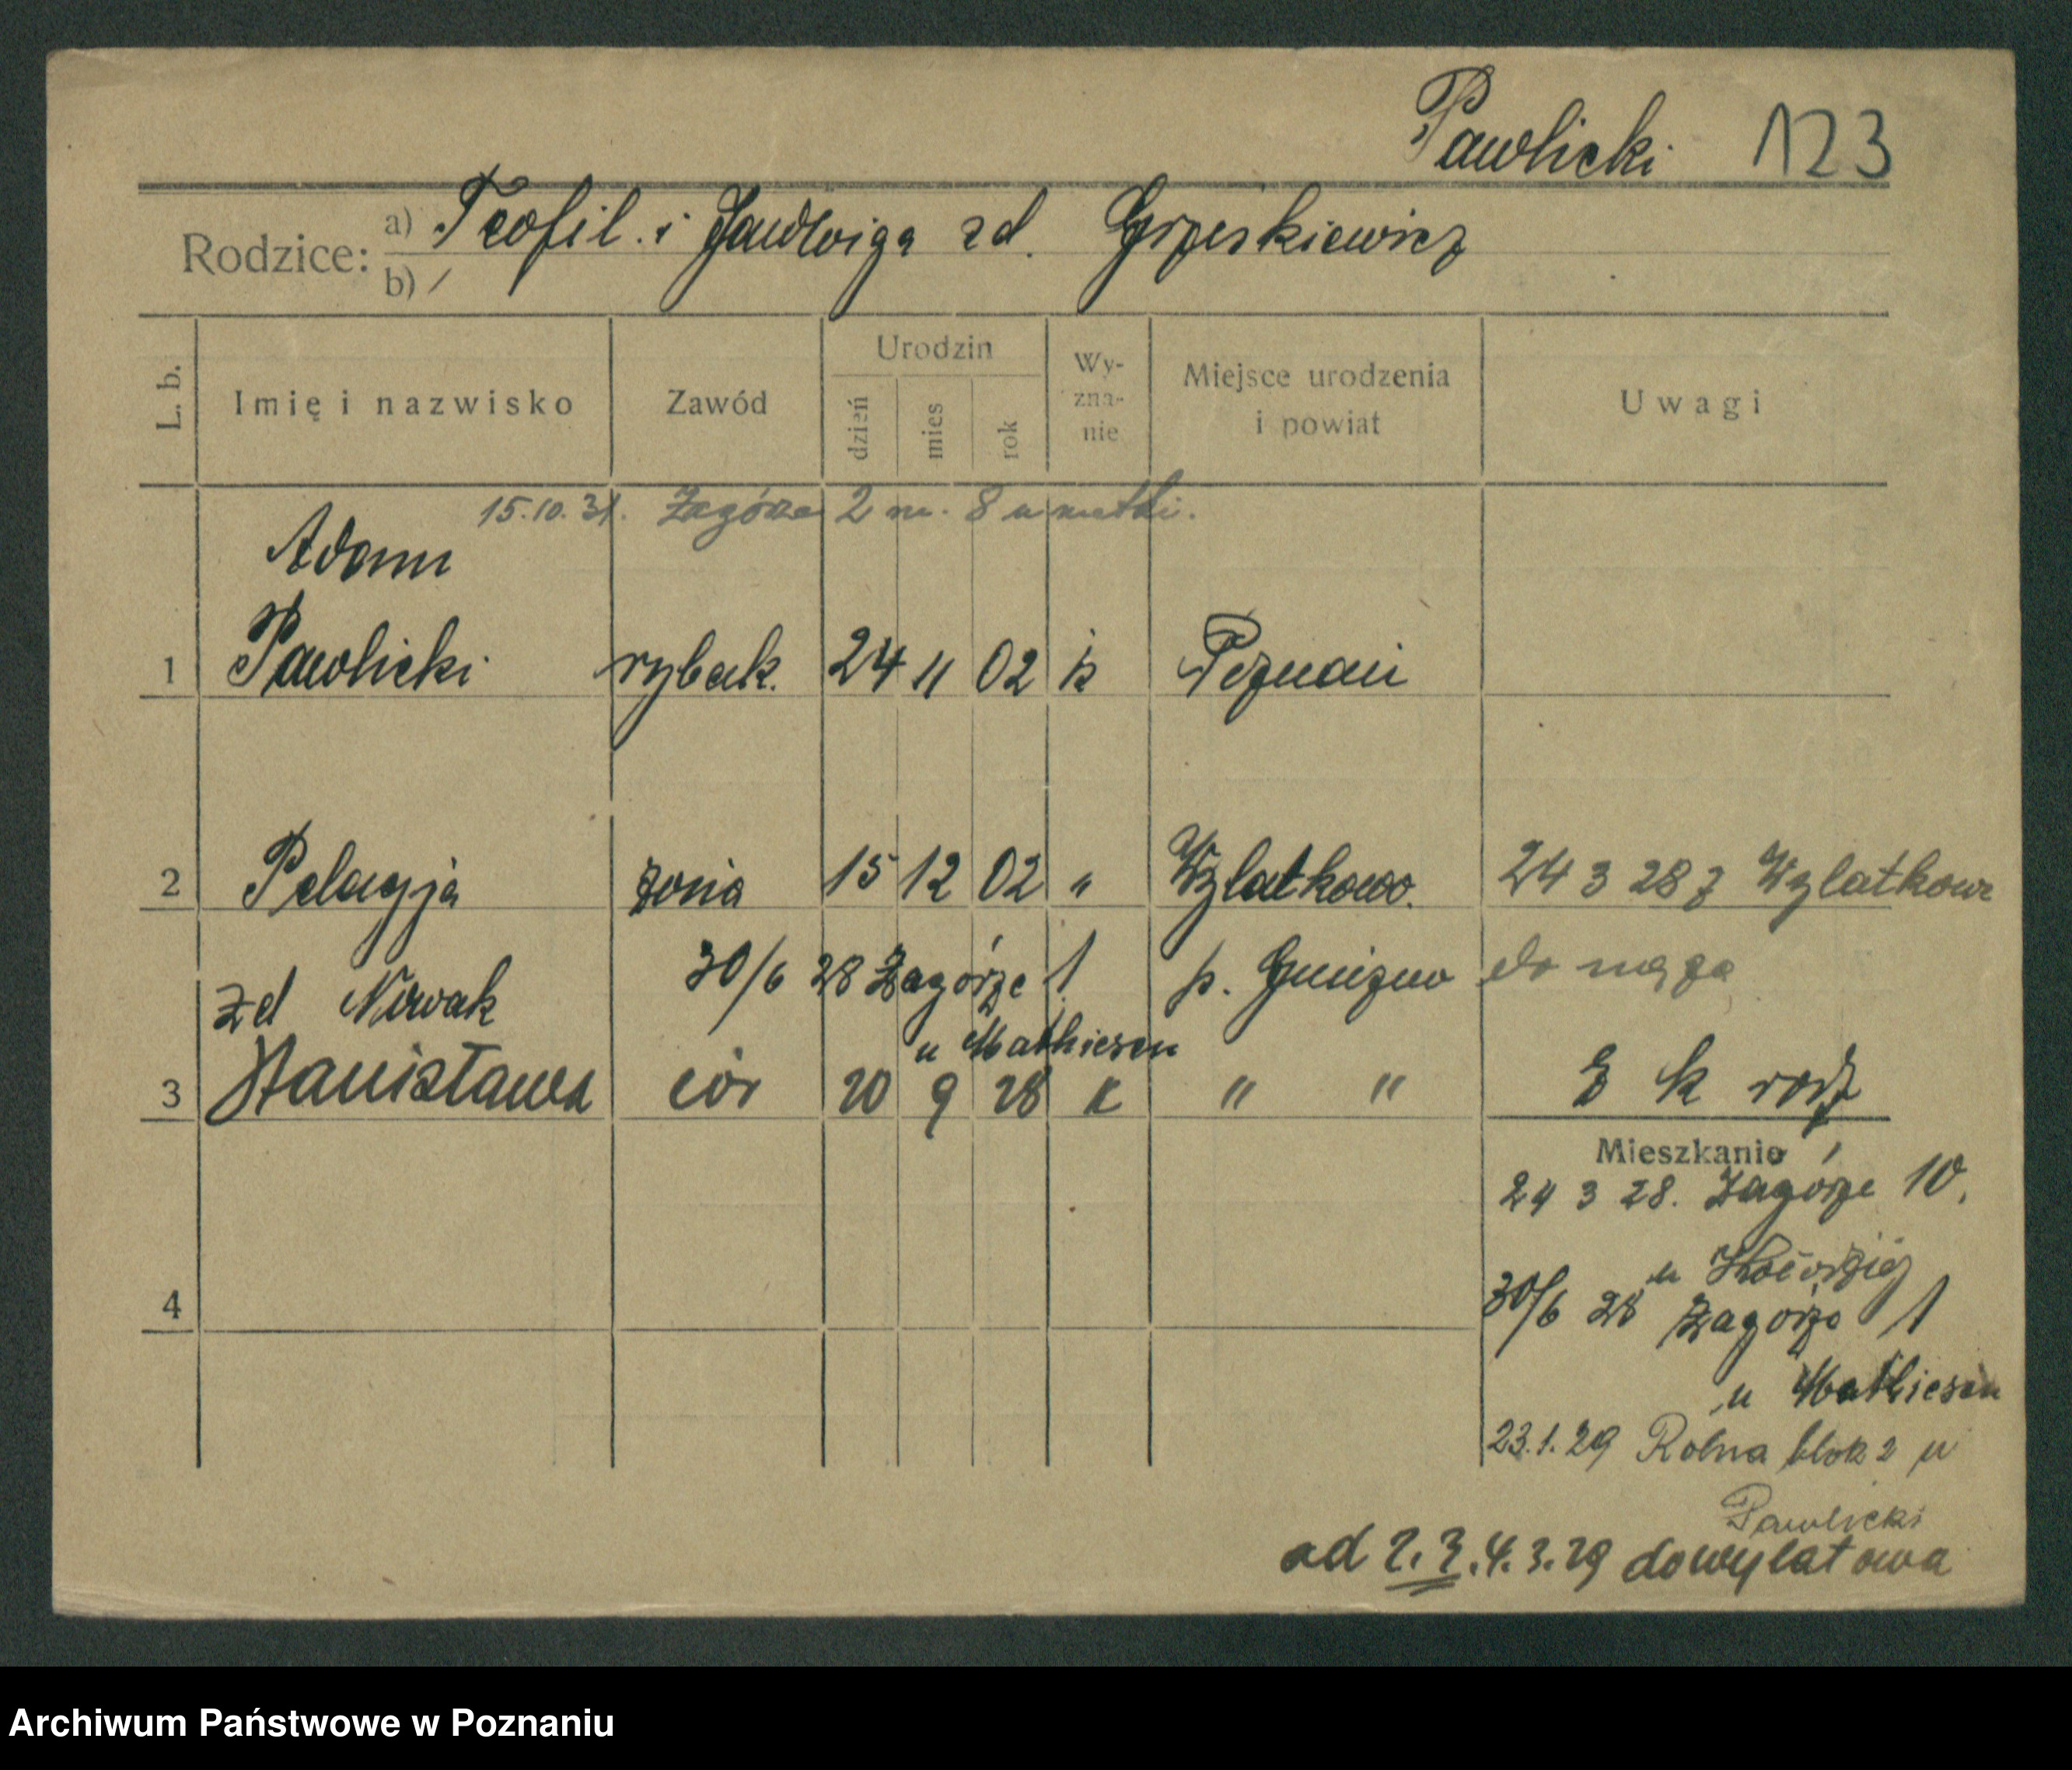 Pawlicki 123
Rodzice: a) Teofil i Jadwiga zd. Grześkiewicz
b) /
L. b. Imię i nazwisko Zawód Urodzin dzień mies rok Wy-zna-nie Miejsce urodzenia i powiat Uwagi
15.10.31. Zagórze 2 m. 8 u matki.
Adam
1 Pawlicki rybak. 24 11 02 k Poznań
2 Pelagja żona 15 12 02 " Wylatkowo. 24 3 28 z Wylatkowa
zd Nowak 30/6 28 Zagórze 1 p. Gniezno do męża
u Mathiesen
3 Stanisława cór 20 9 28 k " " k rodz
Mieszkanie
24 3 28. Zagórze 10.
u
4
30/6 28 Zagórze 1
u Mathiesen
23.1.29 Rolna blok 2 u
Pawlicki
ad 2.3.4.3.29 do Wylatowa
Archiwum Państwowe w Poznaniu